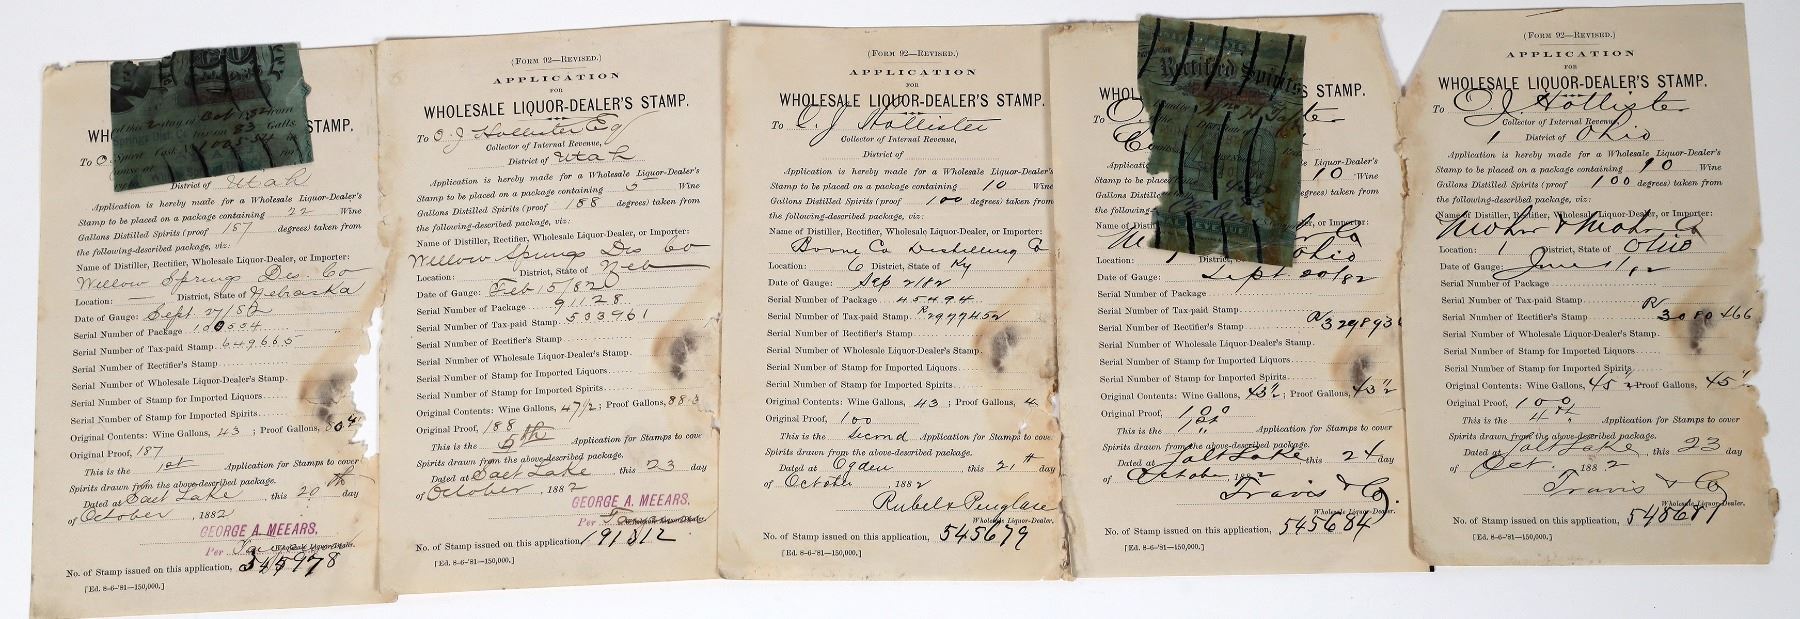 WH STAMP.
To O.
District of Utah
Application is hereby made for a Wholesale Liquor-Dealer's
Stamp to be placed on a package containing 22 Wine
Gallons Distilled Spirits (proof 187 degrees) taken from
the following-described package, viz:
Name of Distiller, Rectifier, Wholesale Liquor-Dealer, or Importer:
Willow Springs Dis. Co
Location: — District, State of Nebraska
Date of Gauge: Sept 27/82
Serial Number of Package 100504
Serial Number of Tax-paid Stamp 649665
Serial Number of Rectifier's Stamp
Serial Number of Wholesale Liquor-Dealer's Stamp
Serial Number of Stamp for Imported Liquors
Serial Number of Stamp for Imported Spirits
Original Contents: Wine Gallons, 43 ; Proof Gallons, 804
Original Proof, 187
This is the 1st Application for Stamps to cover
Spirits drawn from the above-described package.
Dated at Salt Lake this 20th day
of October, 1882
GEORGE A. MEEARS,
Per
Wholesale Liquor-Dealer.
No. of Stamp issued on this application, 545978
[Ed. 8-6-'81—150,000.]
(Form 92—Revised.)
APPLICATION
FOR
WHOLESALE LIQUOR-DEALER'S STAMP.
To O. J. Hollister Esq
Collector of Internal Revenue,
District of Utah
Application is hereby made for a Wholesale Liquor-Dealer's
Stamp to be placed on a package containing 5 Wine
Gallons Distilled Spirits (proof 188 degrees) taken from
the following-described package, viz:
Name of Distiller, Rectifier, Wholesale Liquor-Dealer, or Importer:
Willow Springs Dis Co
Location: District, State of Neb
Date of Gauge: Feb 15/82
Serial Number of Package 91128
Serial Number of Tax-paid Stamp 503961
Serial Number of Rectifier's Stamp
Serial Number of Wholesale Liquor-Dealer's Stamp
Serial Number of Stamp for Imported Liquors
Serial Number of Stamp for Imported Spirits
Original Contents: Wine Gallons, 47/2; Proof Gallons, 88.
Original Proof, 188
This is the 5th Application for Stamps to cove
Spirits drawn from the above-described package.
Dated at Salt Lake this 23 day
of October, 1882
GEORGE A. MEEARS,
Per
Wholesale Liquor-Dealer.
No. of Stamp issued on this application, 191312
[Ed. 8-6-'81—150,000.]
(Form 92—Revised.)
APPLICATION
FOR
WHOLESALE LIQUOR-DEALER'S STAMP.
To O. J. Hollister
Collector of Internal Revenue,
District of
Application is hereby made for a Wholesale Liquor-Dealer's
Stamp to be placed on a package containing 10 Wine
Gallons Distilled Spirits (proof 100 degrees) taken from
the following-described package, viz:
Name of Distiller, Rectifier, Wholesale Liquor-Dealer, or Importer:
Boone Co Distilling Co
Location: 6 District, State of Ky
Date of Gauge: Sep 2/82
Serial Number of Package 45494
Serial Number of Tax-paid Stamp R2977452
Serial Number of Rectifier's Stamp
Serial Number of Wholesale Liquor-Dealer's Stamp
Serial Number of Stamp for Imported Liquors
Serial Number of Stamp for Imported Spirits
Original Contents: Wine Gallons, 43 ; Proof Gallons, 4
Original Proof, 100
This is the Second Application for Stamps to cov
Spirits drawn from the above-described package.
Dated at Ogden this 21st day
of October, 1882
Wholesale Liquor-Dealer.
No. of Stamp issued on this application, 545679
[Ed. 8-6-'81—150,000.]
Rectified Spirits
WH STAMP.
Applicatio Liquor-Dealer's
Stamp to be place 10 Wine
Gallons Distilled s) taken from
the following-descr
Name of Distiller, or Importer:
Ohio
Date of Gauge: Sept 20/82
Serial Number of Package
Serial Number of Tax-paid Stamp
Serial Number of Rectifier's Stamp 329893
Serial Number of Wholesale Liquor-Dealer's Stamp
Serial Number of Stamp for Imported Liquors
Serial Number of Stamp for Imported Spirits
Original Contents: Wine Gallons, 43½; Proof Gallons, 43½
Original Proof, 100
This is the 1st Application for Stamps to cover
Spirits drawn from the above-described package.
Dated at Salt Lake this 24 day
of October 1882
Travis & Co,
Wholesale Liquor-Dealer.
No. of Stamp issued on this application, 545684
[Ed. 8-6-'81—150,000.]
(Form 92—Revised.)
APPLICATION
FOR
WHOLESALE LIQUOR-DEALER'S STAMP.
To O J Hollister
Collector of Internal Revenue,
1 District of Ohio
Application is hereby made for a Wholesale Liquor-Dealer's
Stamp to be placed on a package containing 10 Wine
Gallons Distilled Spirits (proof 100 degrees) taken from
the following-described package, viz:
Name of Distiller, Rectifier, Wholesale Liquor-Dealer, or Importer:
Mohr & Mohr Co
Location: 1 District, State of Ohio
Date of Gauge: June 1/82
Serial Number of Package
Serial Number of Tax-paid Stamp
Serial Number of Rectifier's Stamp 3080466
Serial Number of Wholesale Liquor-Dealer's Stamp
Serial Number of Stamp for Imported Liquors
Serial Number of Stamp for Imported Spirits
Original Contents: Wine Gallons, 45½ Proof Gallons, 45½
Original Proof, 100
This is the 4th Application for Stamps to cover
Spirits drawn from the above-described package.
Dated at Salt Lake this 23 day
of Oct. 1882
Travis & Co
Wholesale Liquor-Dealer.
No. of Stamp issued on this application, 545681
[Ed. 8-6-'81—150,000.]